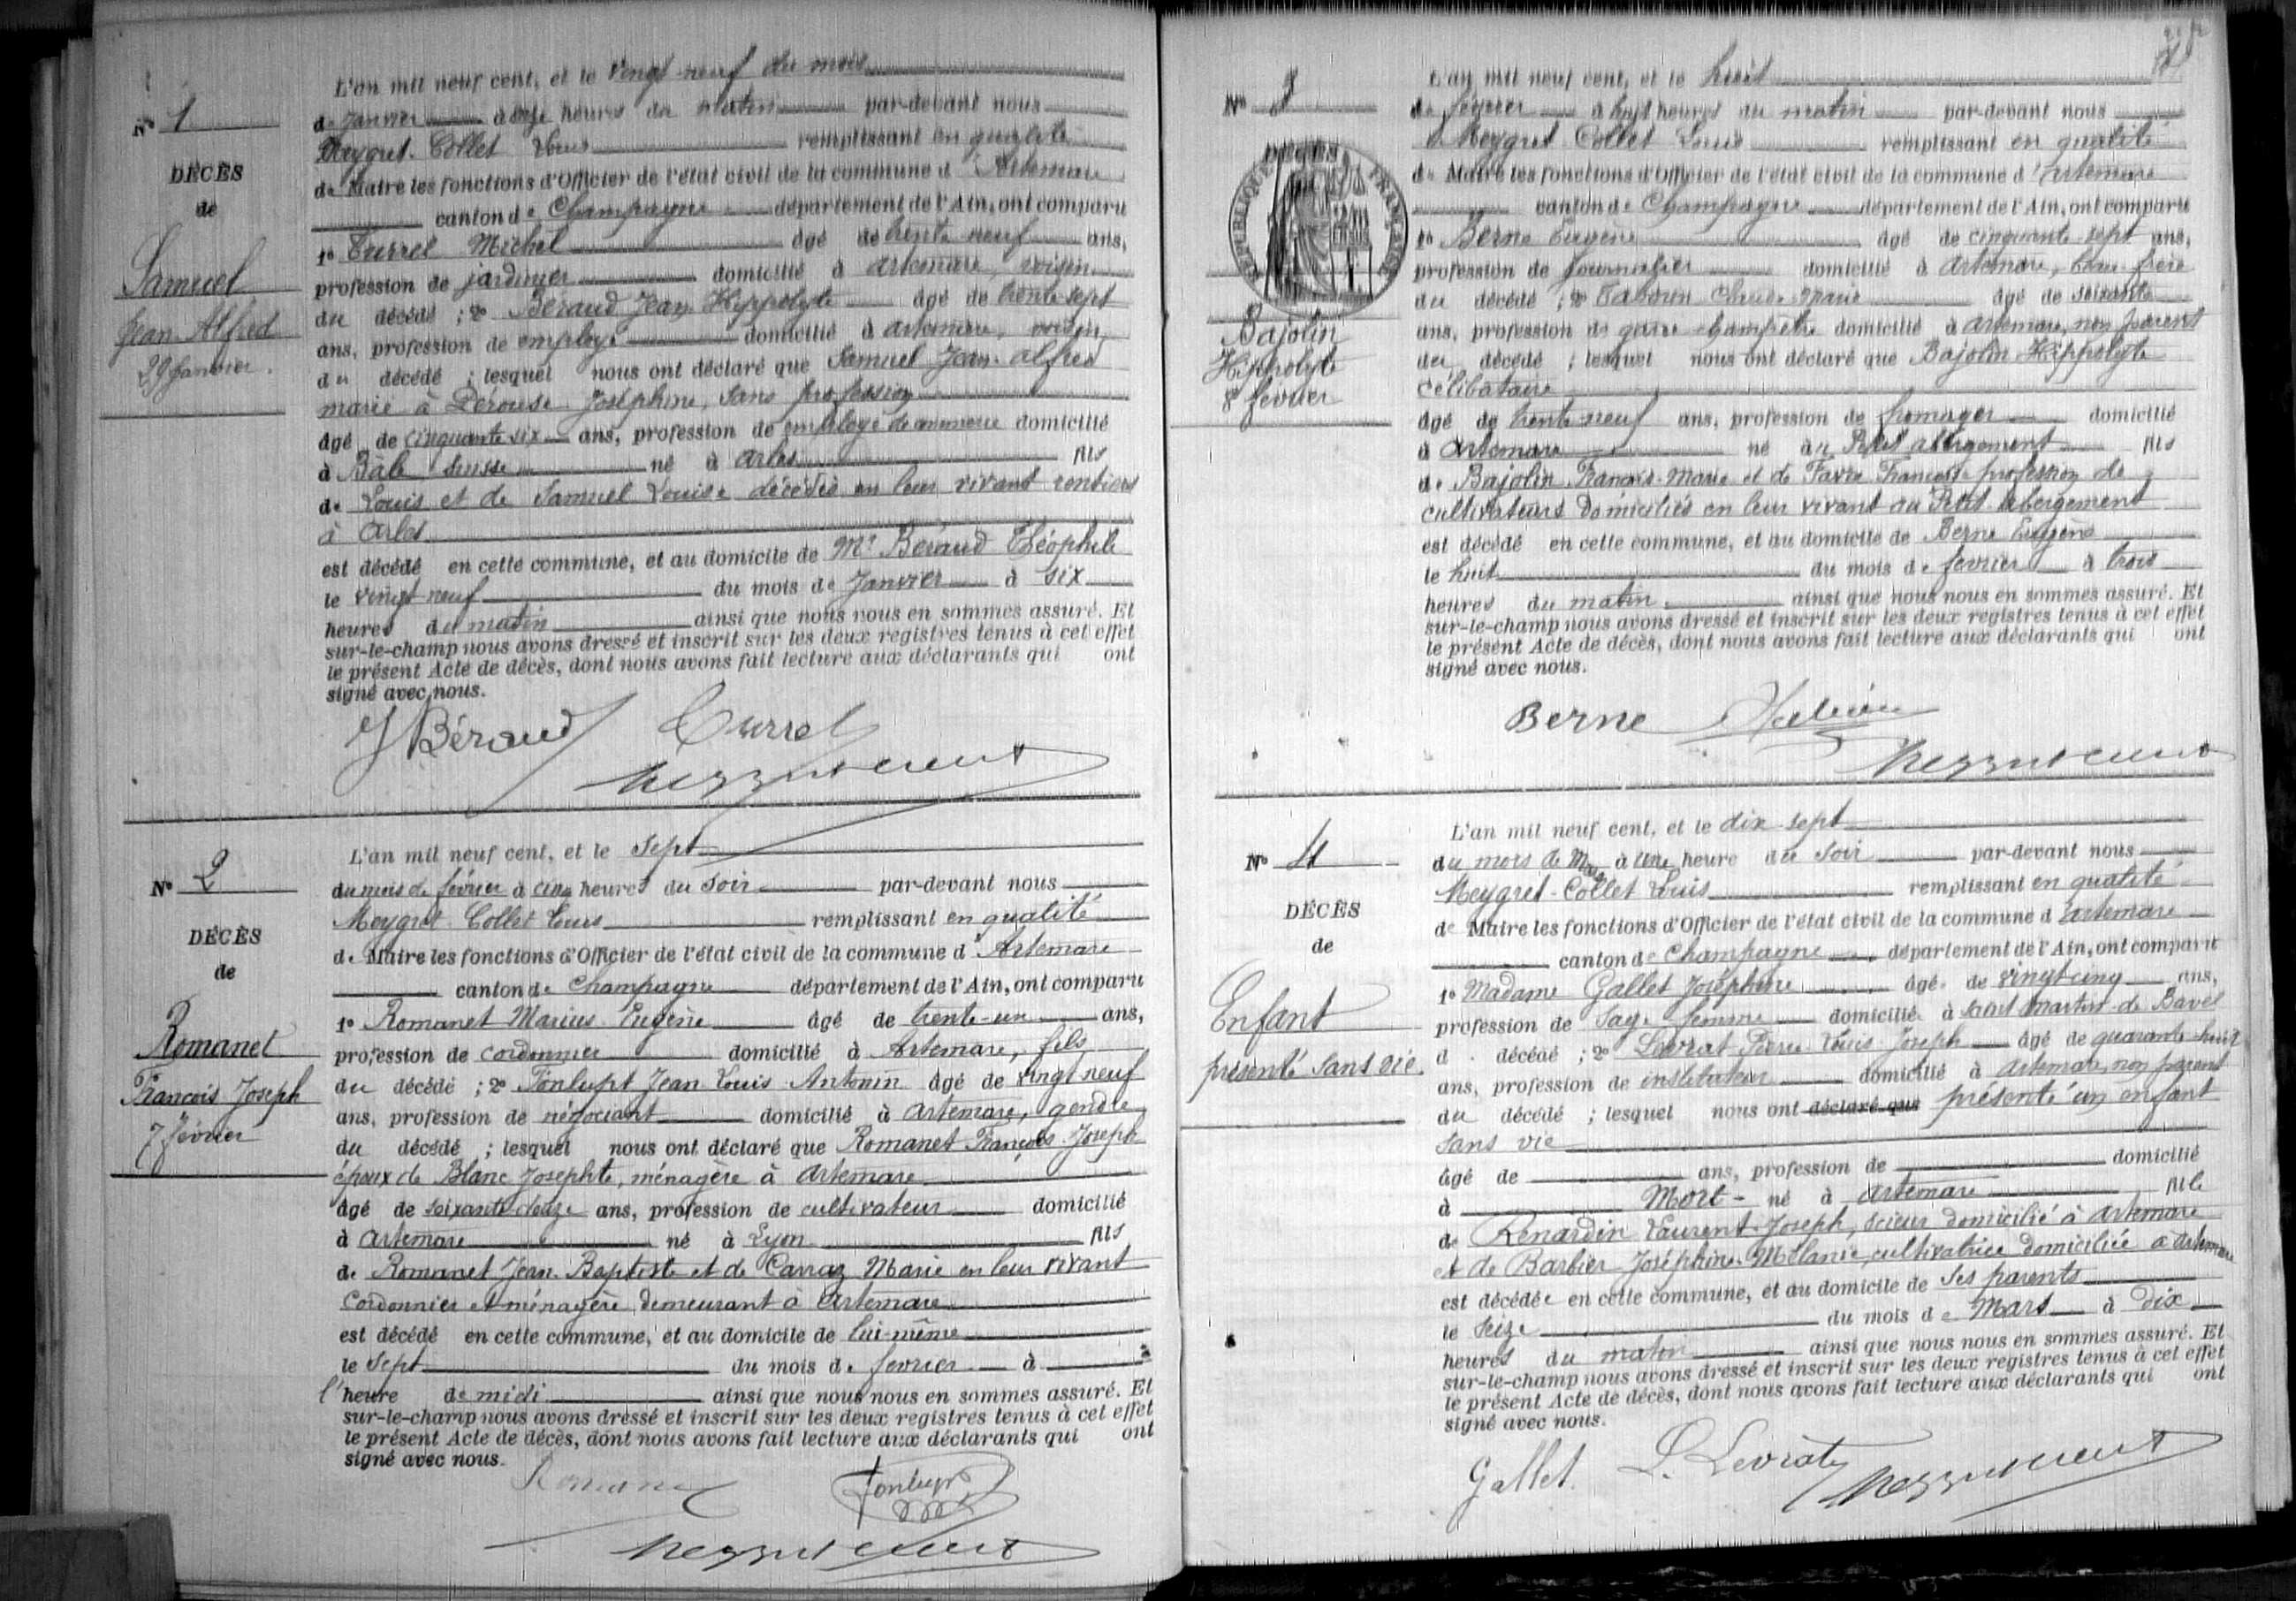 N° 1
DÉCÈS
de
Samuel
Jean Alfred
29 Janvier.
L'an mil neuf cent, et le vingt-neuf du mois
de Janvier à onze heures du matin par-devant nous
Meygret-Collet Louis remplissant en qualité
de Maire les fonctions d'Officier de l'état civil de la commune d'Artemare
canton de Champagne département de l'Ain, ont comparu
1° Turrel Michel âgé de trente-neuf ans,
profession de jardinier domicilié à Artemare, voisin
du décédé ; 2° Béraud Jean Hippolyte âgé de trente sept
ans, profession de employé domicilié à Artemare, voisin,
du décédé ; lesquel nous ont déclaré que Samuel Jean-Alfred
marié à Derouse Joséphine, sans profession
âgé de cinquante six ans, profession de employé de commerce domicilié
à Bâle Suisse né à Arles fils
de Louis et de Samuel Louise décédés en leur vivant rentiers
à Arles
est décédé en cette commune, et au domicile de Mr Béraud Théophile
le vingt neuf du mois de Janvier à six
heures du matin ainsi que nous nous en sommes assuré. Et
sur-le-champ nous avons dressé et inscrit sur les deux registres tenus à cet effet
le présent Acte de décès, dont nous avons fait lecture aux déclarants qui ont
signé avec nous.
J Béraud Turrel
N° 2
DÉCÈS
de
Romanet
François Joseph
7 février
L'an mil neuf cent, et le sept
du mois de février à cinq heures du soir par-devant nous
Meygret-Collet Louis remplissant en qualité
de Maire les fonctions d'Officier de l'état civil de la commune d'Artemare
canton de Champagne département de l'Ain, ont comparu
1° Romanet Marius Eugène âgé de trente-un ans,
profession de cordonnier domicilié à Artemare, fils
du décédé ; 2° Fonlupt Jean Louis Antonin âgé de vingt neuf
ans, profession de négociant domicilié à Artemare, gendre
du décédé ; lesquel nous ont déclaré que Romanet François-Joseph
époux de Blanc Josephte, ménagère à Artemare
âgé de soixante douze ans, profession de cultivateur domicilié
à Artemare né à Lyon fils
de Romanet Jean-Baptiste et de Carraz Marie en leur vivant
cordonnier et ménagère demeurant à Artemare
est décédé en cette commune, et au domicile de lui-même
le sept du mois de février à
l'heure de midi ainsi que nous nous en sommes assuré. Et
sur-le-champ nous avons dressé et inscrit sur les deux registres tenus à cet effet
le présent Acte de décès, dont nous avons fait lecture aux déclarants qui ont
signé avec nous.
Romanet Fonlupt
N° 3
DÉCÈS
RÉPUBLIQUE FRANÇAISE
Bajolin
Hippolyte
8 février
L'an mil neuf cent, et le huit
de février à huit heures du matin par-devant nous
Meygret-Collet Louis remplissant en qualité
de Maire les fonctions d'Officier de l'état civil de la commune d'Artemare
canton de Champagne département de l'Ain, ont comparu
1° Berne Eugène âgé de cinquante-sept ans,
profession de journalier domicilié à Artemare, beau-frère
du décédé ; 2° Claude Marie âgé de soixante
ans, profession de garde-champêtre domicilié à Artemare, non parent
du décédé ; lesquel nous ont déclaré que Bajolin Hippolyte
célibataire
âgé de trente-neuf ans, profession de fromager domicilié
à Artemare né au Petit Abergement fils
de Bajolin François-Marie et de Favre Françoise profession de
cultivateurs domiciliés en leur vivant au Petit-Abergement
est décédé en cette commune, et au domicile de Berne Eugène
le huit du mois de février à trois
heures du matin ainsi que nous nous en sommes assuré. Et
sur-le-champ nous avons dressé et inscrit sur les deux registres tenus à cet effet
le présent Acte de décès, dont nous avons fait lecture aux déclarants qui ont
signé avec nous.
Berne
N° 4
DÉCÈS
de
Enfant
présenté sans vie.
L'an mil neuf cent, et le dix sept
du mois de Mars à une heure du soir par-devant nous
Meygret-Collet Louis remplissant en qualité
de Maire les fonctions d'Officier de l'état civil de la commune d'Artemare
canton de Champagne département de l'Ain, ont comparu
1° Madame Gallet Joséphine âgé de vingt cinq ans,
profession de Sage femme domicilié à Saint Martin-de Bavel
d décédé ; 2° Levrat Pierre-Louis-Joseph âgé de quarante-huit
ans, profession de instituteur domicilié à Artemare, non parent
du décédé ; lesquel nous ont déclaré que présenté un enfant
sans vie
âgé de ans, profession de domicilié
à Mort- né à Artemare fille
de Renardin Laurent-Joseph, scieur domicilié à Artemare
et de Barbier Joséphine-Mélanie, cultivatrice domiciliée à Artemare
est décédée en cette commune, et au domicile de ses parents
le seize du mois de Mars à dix
heures du matin ainsi que nous nous en sommes assuré. Et
sur-le-champ nous avons dressé et inscrit sur les deux registres tenus à cet effet
le présent Acte de décès, dont nous avons fait lecture aux déclarants qui ont
signé avec nous.
Gallet. L. Levrat